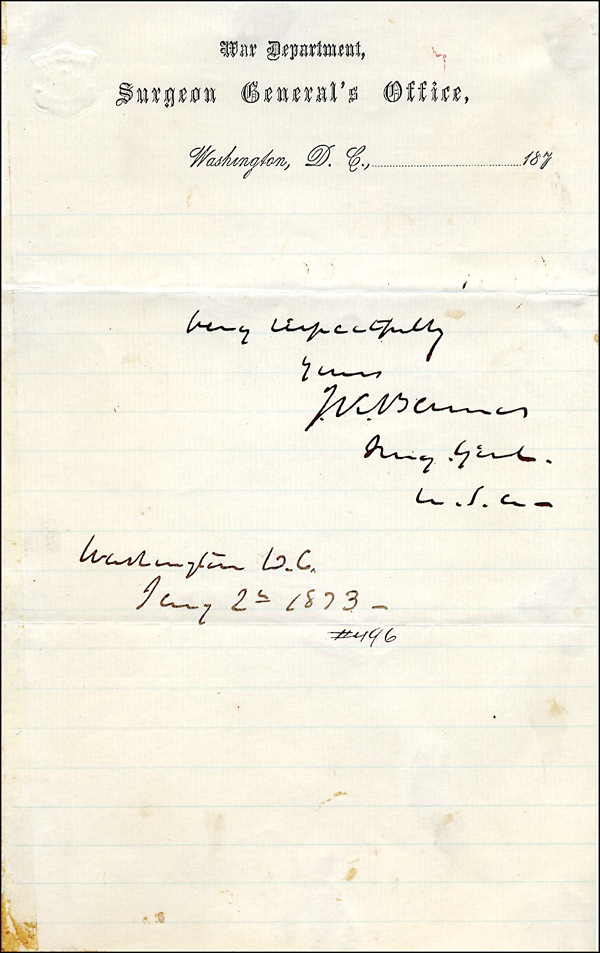 War Department,
Surgeon General's Office,
Washington, D. C., 187
Very respectfully
Yours
J.K. Barnes
Surg. Genl.
U.S.A.
Washington D.C.
Jany 2d 1873
#496